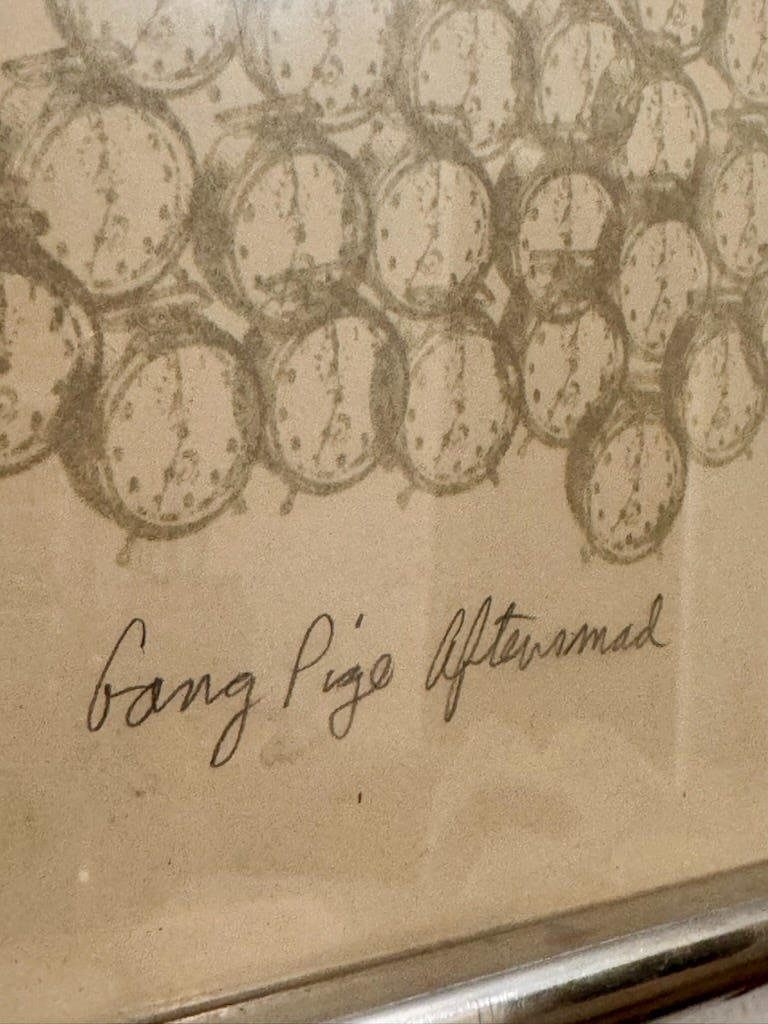 Gang Pige Aftensmad